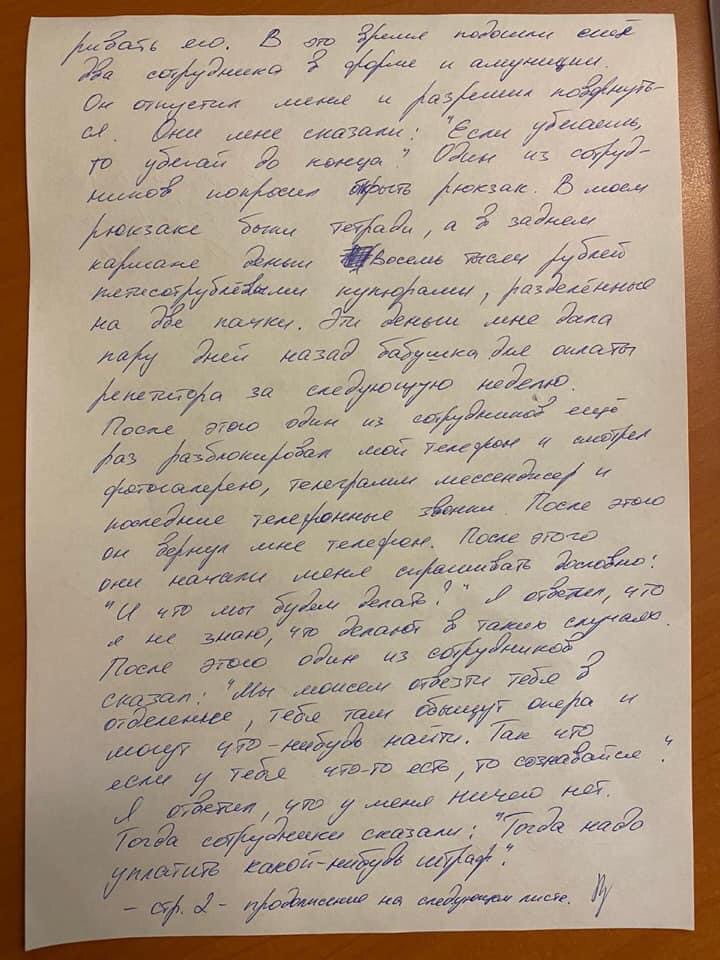 ривать его. В это время подошли ещё
два сотрудника в форме и амуниции.
Он отпустил меня и разрешил повернуть-
ся. Они мне сказали: "Если убегаешь,
то убегай до конца." Один из сотруд-
ников попросил открыть рюкзак. В моем
рюкзаке были тетради, а в заднем
кармане деньги Восемь тысяч рублей
пятисотрублёвыми купюрами, разделённые
на две пачки. Эти деньги мне дала
пару дней назад бабушка для оплаты
репетитора за следующую неделю.
После этого один из сотрудников ещё
раз разблокировал мой телефон и смотрел
фотогалерею, телеграмм мессенджер и
последние телефонные звонки. После этого
он вернул мне телефон. После этого
они начали меня спрашивать дословно:
"И что мы будем делать?" Я ответил, что
я не знаю, что делают в таких случаях.
После этого один из сотрудников
сказал: "Мы можем отвезти тебя в
отделение, тебя там обыщут опера и
могут что-нибудь найти. Так что
если у тебя что-то есть, то сознавайся."
Я ответил, что у меня ничего нет.
Тогда сотрудники сказали: "Тогда надо
уплатить какой-нибудь штраф".
- стр. 2 - продолжение на следующем листе.